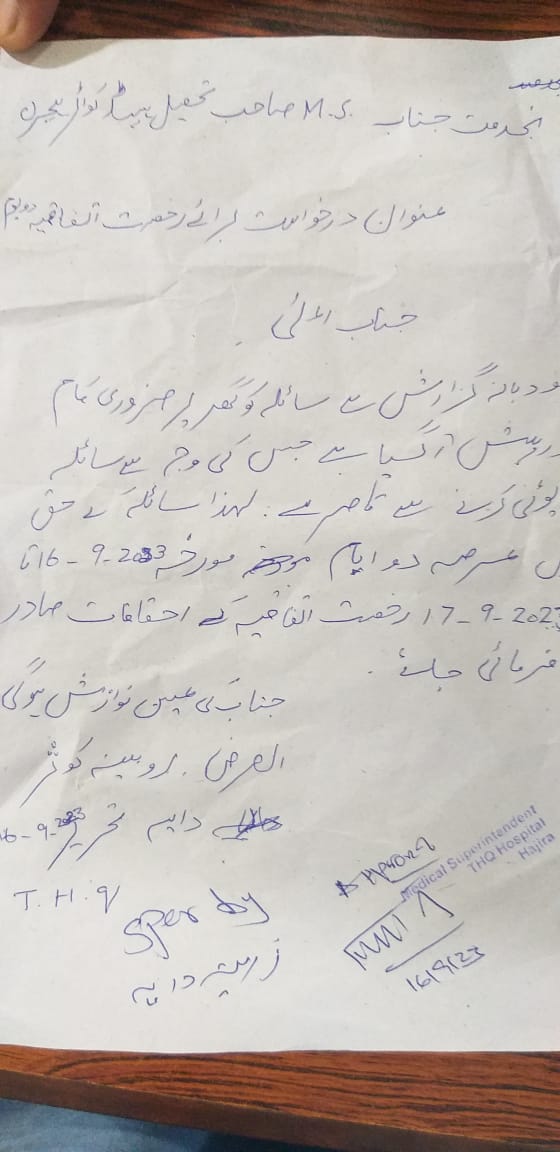 بخدمت جناب M.S. صاحب تحصیل ہیڈ کوائر ہجیرہ
عنوان درخواست برائے رخصت اتفاقیہ دو یوم
جناب اعلٰی
مودبانہ گزارش ہے سائلہ کو گھر پر ضروری کام
درپیش آگیا ہے جس کی وجہ سے سائلہ
ڈیوٹی کرنے سے قاصر ہے. لہذا سائلہ کے حق
میں عرصہ دو ایام مورخہ 16-9-2023 تا
17-9-2023 رخصت اتفاقیہ کے احکامات صادر
فرمائی جائے.
جناب کی عین نوازش ہوگی
العرض. روبینہ کوثر
دایہ تحریر 16-9-2023
T.H.Q
Sper by
زرینہ دایہ
Medical Superintendent
THQ Hospital
Hajira
16/9/23